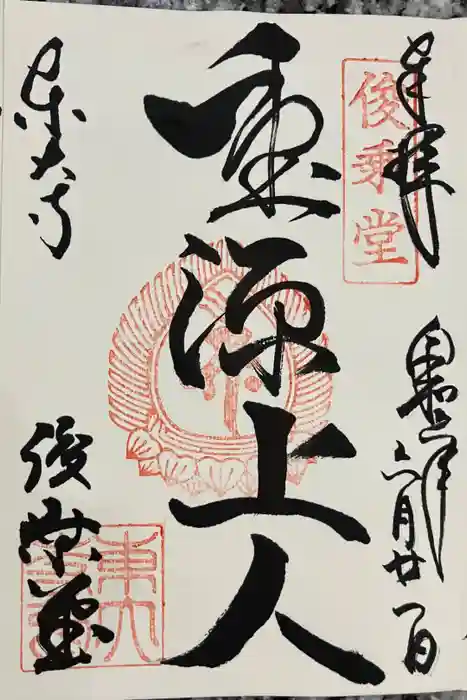 奉拝
俊乗堂
六月廿一日
重源上人
東大寺
俊乗堂